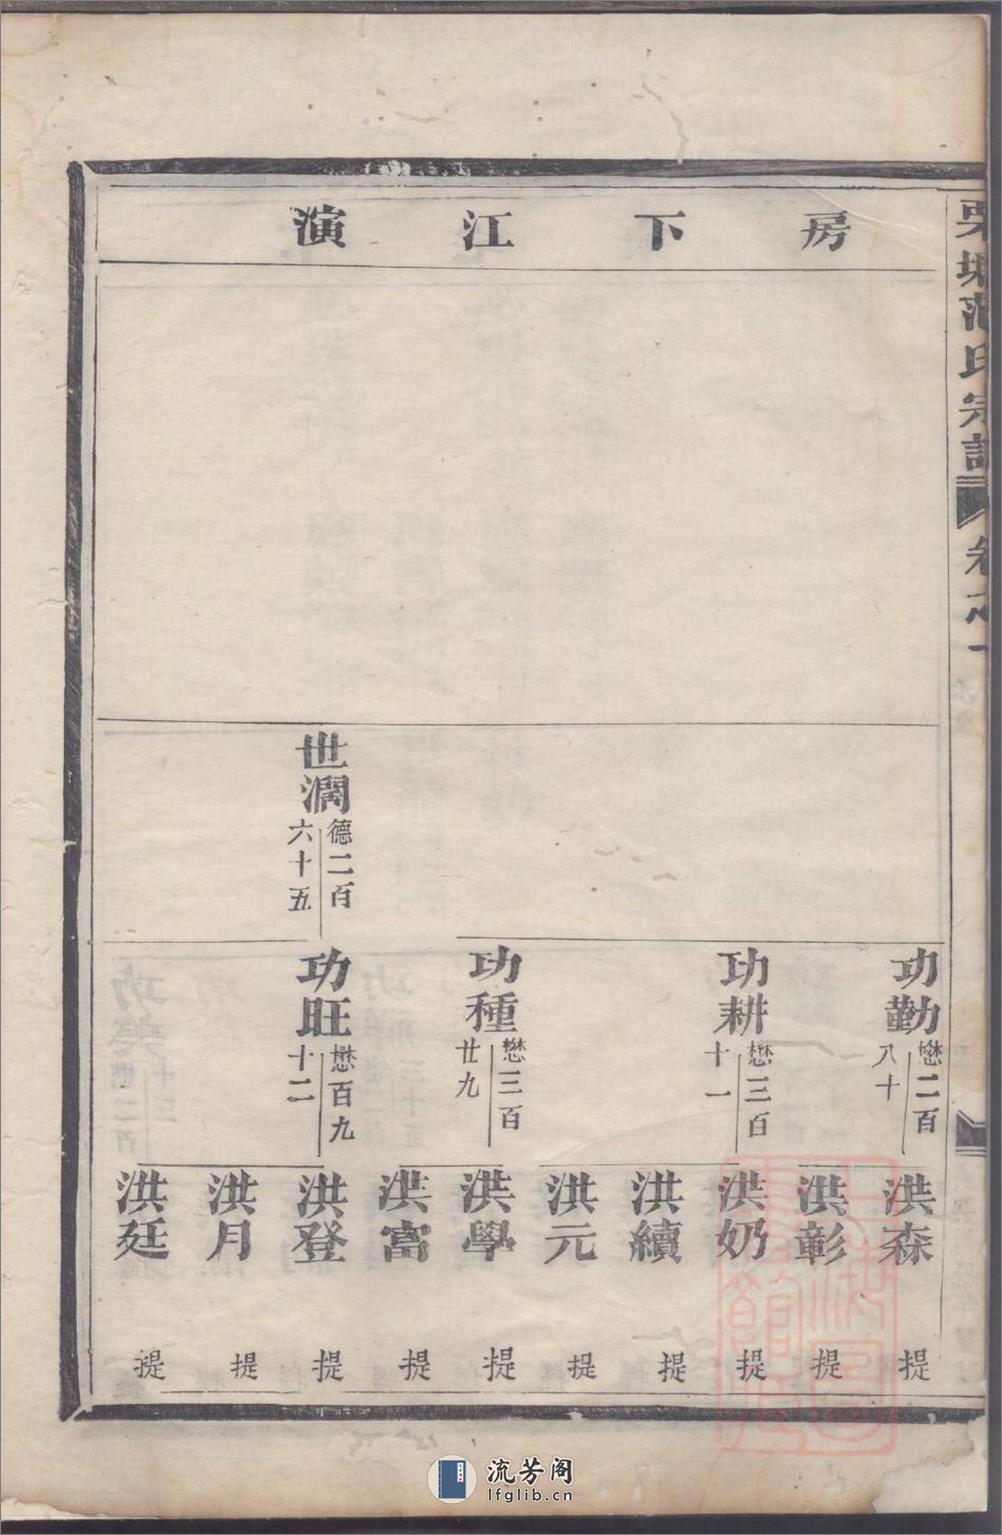 栗塘范氏宗譜
卷之一
房下江演
世濶
德二百
六十五
功勤
懋二百
八十
功耕
懋三百
十一
功種
懋三百
廿九
功旺
懋百九
十二
洪森
提
洪彰
提
洪奶
提
洪續
提
洪元
提
洪學
提
洪富
提
洪登
提
洪月
提
洪廷
提
流芳阁
lfglib.cn